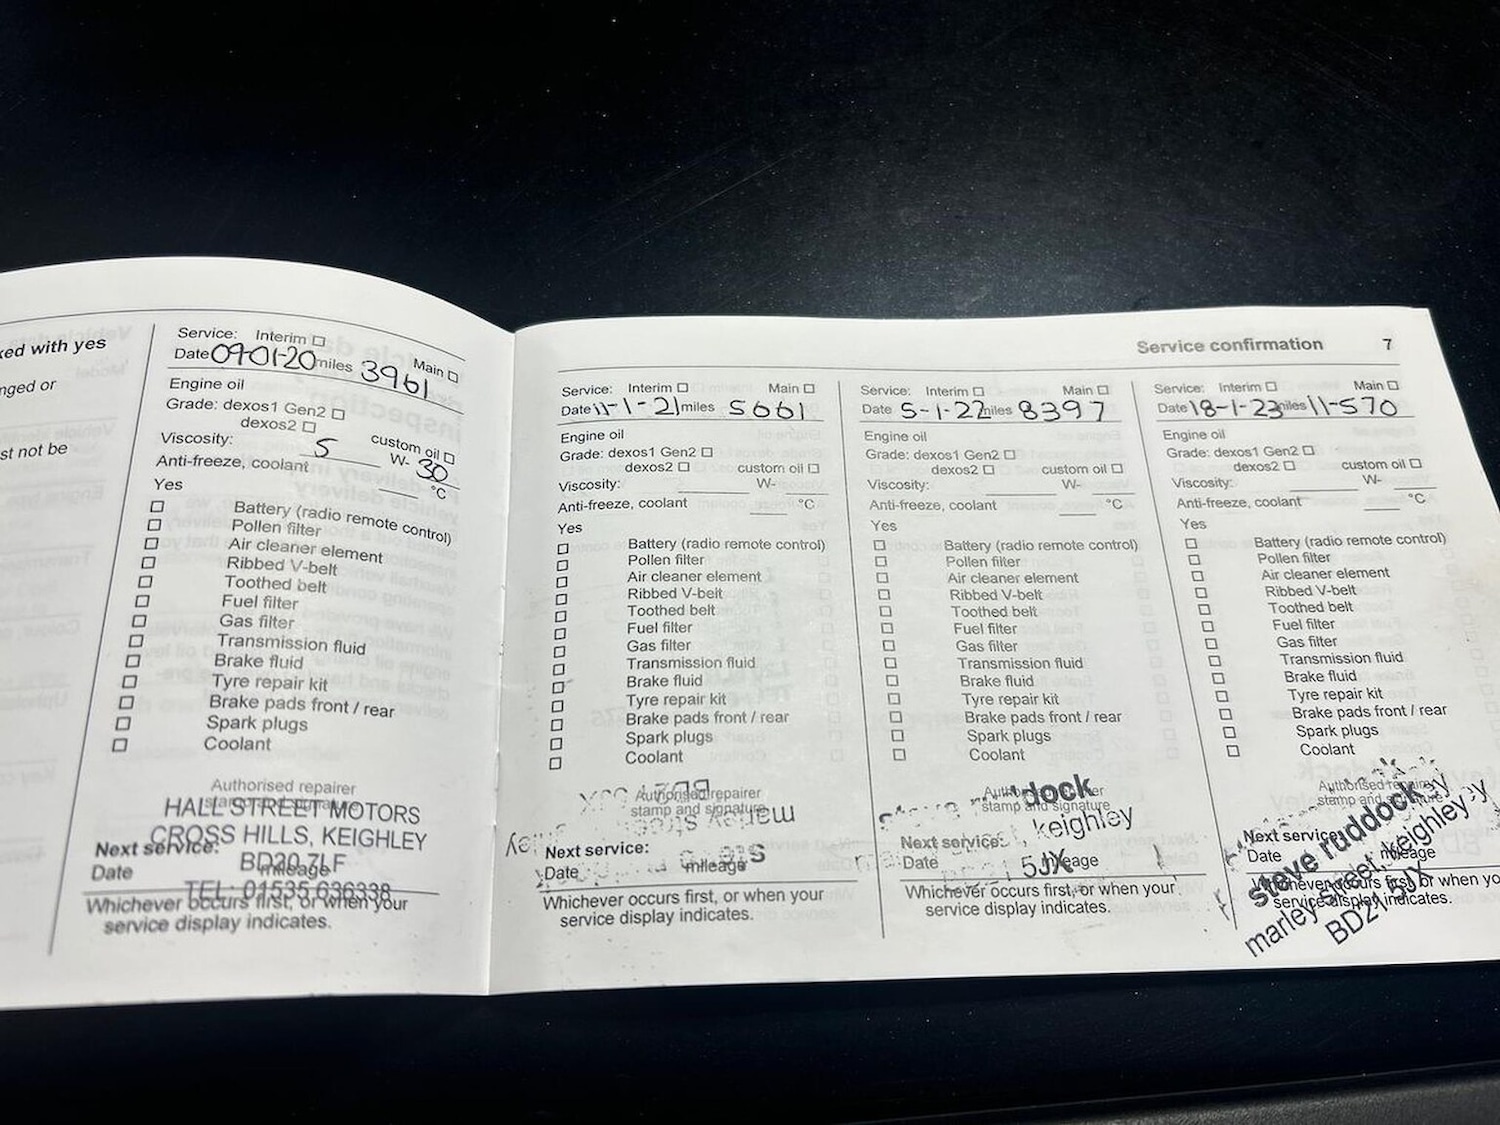 ked with yes
nged or
st not be
Service: Interim Main
Date 09-01-20 miles 3961
Engine oil
Grade: dexos1 Gen2
dexos2
custom oil
Viscosity: 5 W- 30
Anti-freeze, coolant °C
Yes
Battery (radio remote control)
Pollen filter
Air cleaner element
Ribbed V-belt
Toothed belt
Fuel filter
Gas filter
Transmission fluid
Brake fluid
Tyre repair kit
Brake pads front / rear
Spark plugs
Coolant
Authorised repairer
stamp and signature
HALL STREET MOTORS
CROSS HILLS, KEIGHLEY
BD20 7LF
TEL: 01535 636338
Next service:
Date mileage
Whichever occurs first, or when your
service display indicates.
Service confirmation 7
Service: Interim Main
Date 11-1-21 miles 5661
Engine oil
Grade: dexos1 Gen2
dexos2 custom oil
Viscosity: W-
Anti-freeze, coolant °C
Yes
Battery (radio remote control)
Pollen filter
Air cleaner element
Ribbed V-belt
Toothed belt
Fuel filter
Gas filter
Transmission fluid
Brake fluid
Tyre repair kit
Brake pads front / rear
Spark plugs
Coolant
Authorised repairer
stamp and signature
Next service:
Date mileage
Whichever occurs first, or when your
service display indicates.
Service: Interim Main
Date 5-1-22 miles 8397
Engine oil
Grade: dexos1 Gen2
dexos2 custom oil
Viscosity: W-
Anti-freeze, coolant °C
Yes
Battery (radio remote control)
Pollen filter
Air cleaner element
Ribbed V-belt
Toothed belt
Fuel filter
Gas filter
Transmission fluid
Brake fluid
Tyre repair kit
Brake pads front / rear
Spark plugs
Coolant
Authorised repairer
stamp and signature
steve ruddock
keighley
5JX
Next service:
Date mileage
Whichever occurs first, or when your
service display indicates.
Service: Interim Main
Date 18-1-23 miles 11-570
Engine oil
Grade: dexos1 Gen2
dexos2 custom oil
Viscosity: W-
Anti-freeze, coolant °C
Yes
Battery (radio remote control)
Pollen filter
Air cleaner element
Ribbed V-belt
Toothed belt
Fuel filter
Gas filter
Transmission fluid
Brake fluid
Tyre repair kit
Brake pads front / rear
Spark plugs
Coolant
Authorised repairer
stamp and signature
steve ruddock
marley street, Keighley
BD21 5JX
Next service:
Date mileage
Whichever occurs first, or when yo
service display indicates.